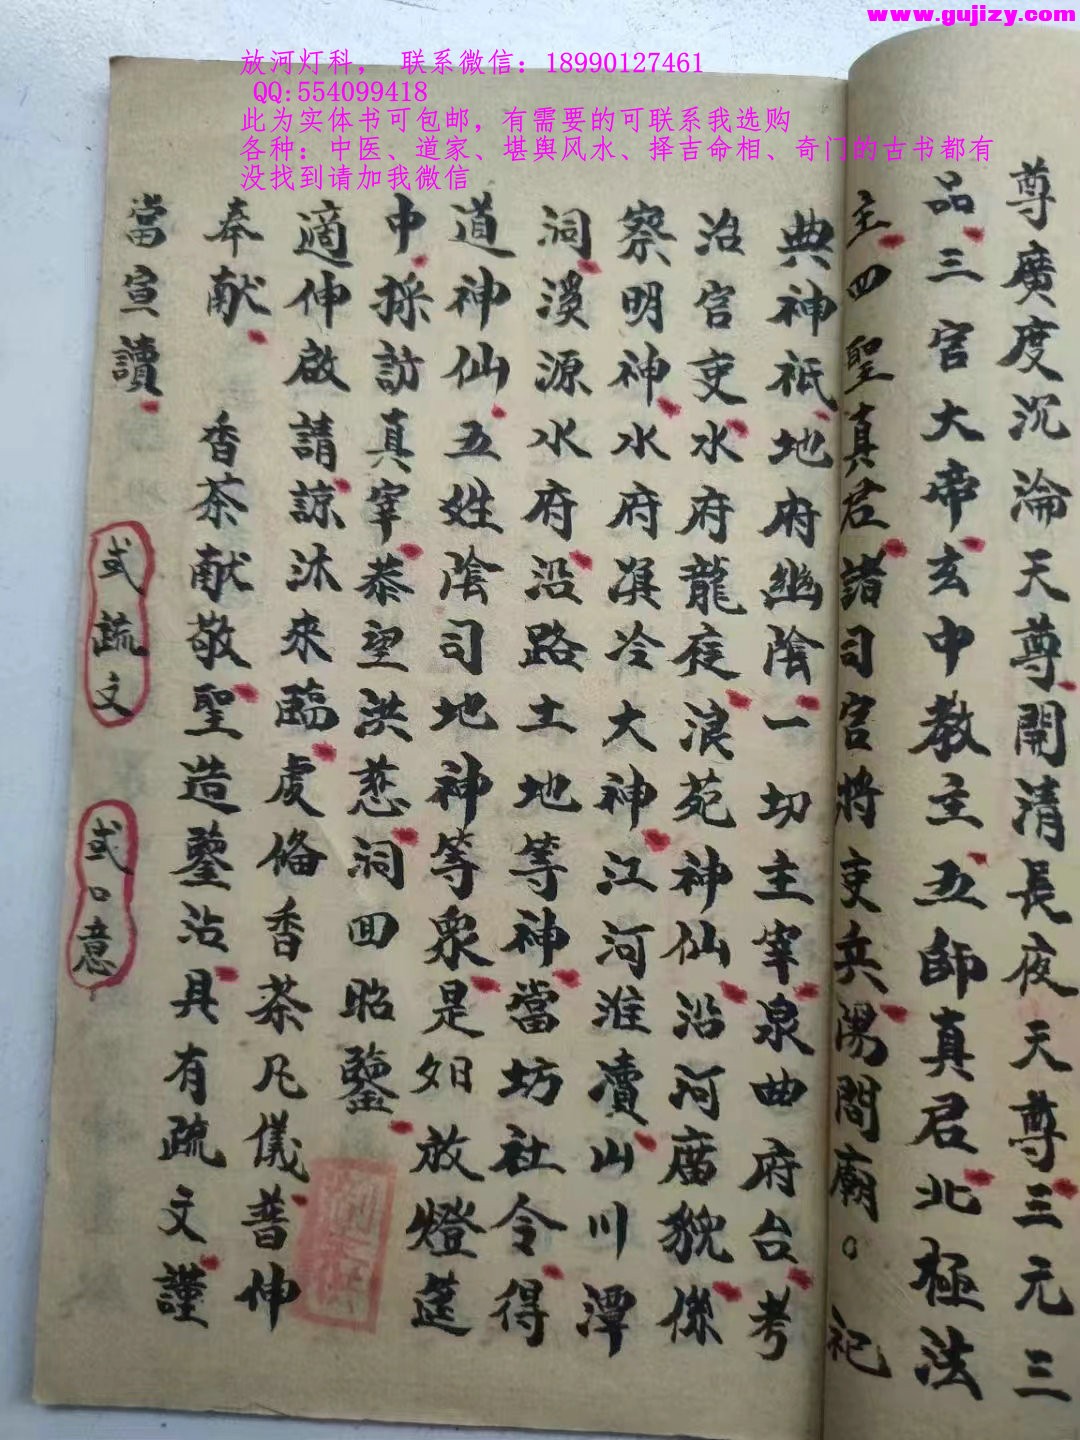 www.gujizy.com
放河灯科， 联系微信：18990127461
QQ:554099418
此为实体书可包邮，有需要的可联系我选购
各种：中医、道家、堪舆风水、择吉命相、奇门的古书都有
没找到请加我微信
尊廣度沉淪天尊開清長夜天尊三元三
品三官大帝玄中教主五師真君北極法
主四聖真君諸司官将吏兵陽間廟。祀
典神祇地府幽陰一切主宰泉曲府台考
治官吏水府龍㢗浪苑神仙沿河廣貌傑
察明神水府漠冷大神江河淮瀆山川潭
洞溪源水府沿路土地等神當坊社令得
道神仙五姓陰司地神等衆是夕放燈筵
中採訪真宰恭望洪慈洞回昭鑒
適伸啟請諒沐來臨虔脩香茶凡儀普伸
奉献 香茶献敬聖造鑒沾具有疏文謹
當宣讀
或疏文 或口意